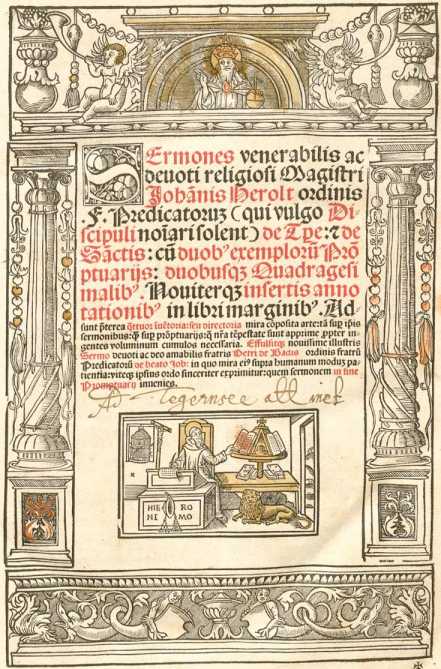 SErmones venerabilis ac
deuoti religiosi Magistri
Johānis Herolt ordinis
F. Predicatorum (qui vulgo Di-
scipuli noīari solent) de Tpe: ⁊ de
Sāctis: cū duobꝰ exemplorū Prō
ptuarijs: duobusqꝫ Quadragesi
malibꝰ. Nouiterqꝫ insertis anno
tationibꝰ in libri marginibꝰ. Ad
sunt p̄terea q̄ttuor
seu directoria mira cōposita arte:tā sup ip̄is
sermonibus: q̄ꝫ sup prōptuarijs: q̄ nr̄a tēpestate sunt apprime ꝓpter in
gentes voluminum cumulos necessaria. Effulsitqꝫ nouissime illustris
Sermo deuoti ac deo amabilis fratris Petri de ordinis fratrū
Predicatorū de beato Job: in quo mira eiꝰ supra humanum modum pa
tientia:viteqꝫ ipsius ordo sinceriter exprimitur: quem sermonem in fine
Promptuarij inuenies.
Ad Tegernsee
HIE RO
NI MO